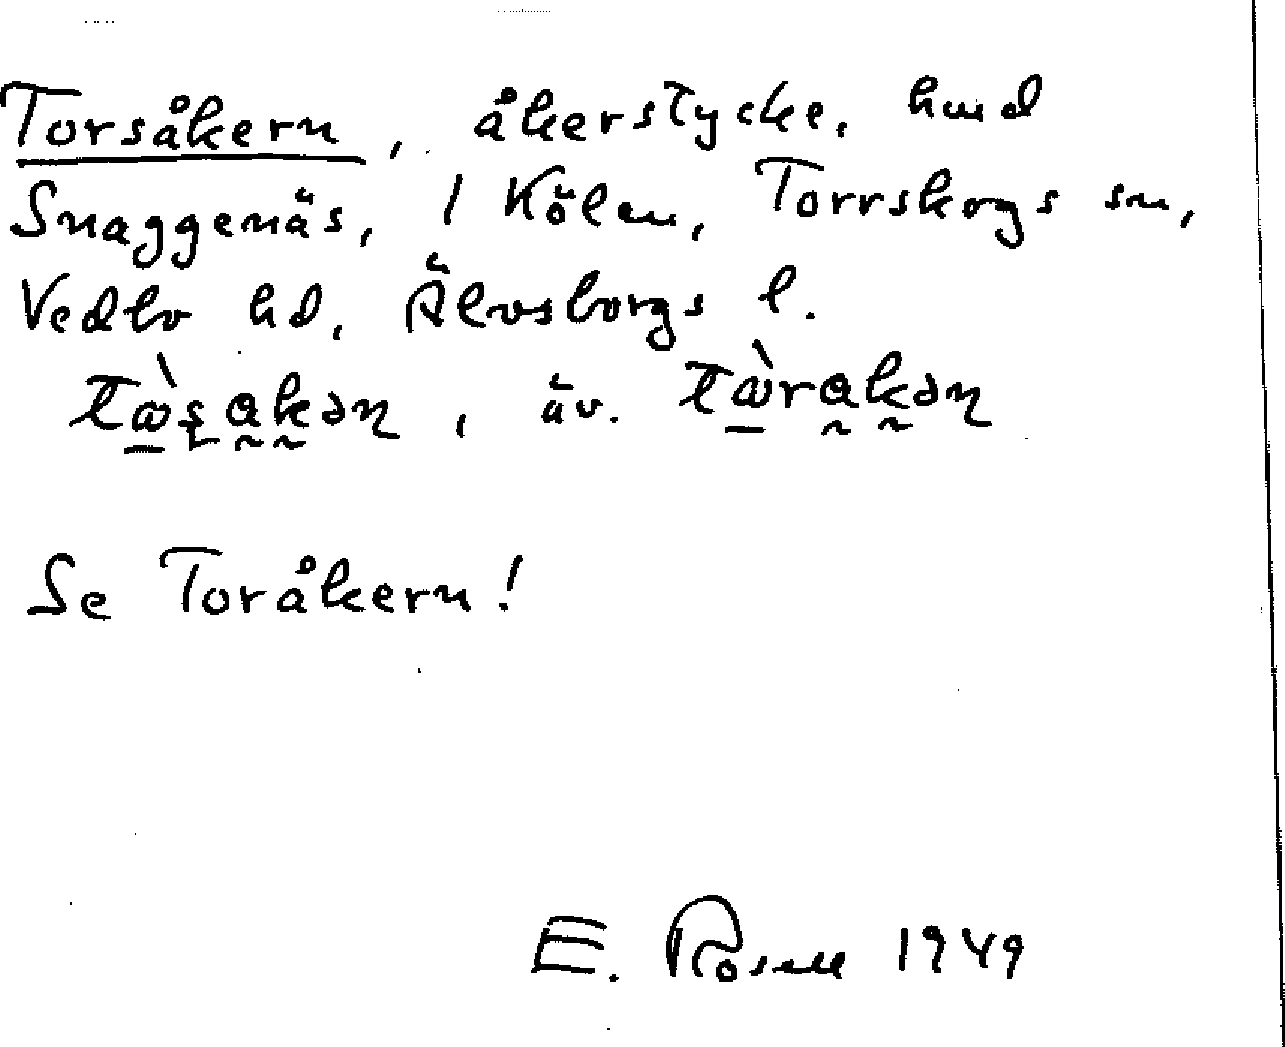 Torsåkern, åkerstycke, hmd
Snaggenäs, 1 Kölen, Torrskogs sn,
Vedbo hd, Älvsborgs l.
, äv.
Se Toråkern!
E. Rosell 1949